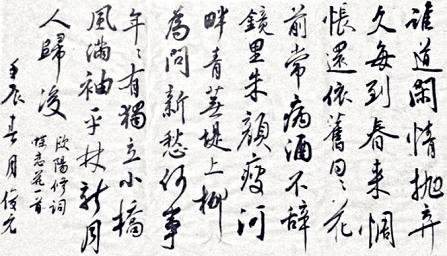 誰道閑情抛弃
久每到春来惆
悵還依舊日〻花
前常病酒不辞
鏡里朱顔瘦河
畔青蕪堤上柳
為問新愁何事
年〻有獨立小橋
風滿袖平林新月
人歸後
欧陽修詞
蝶恋花一首
壬辰春月